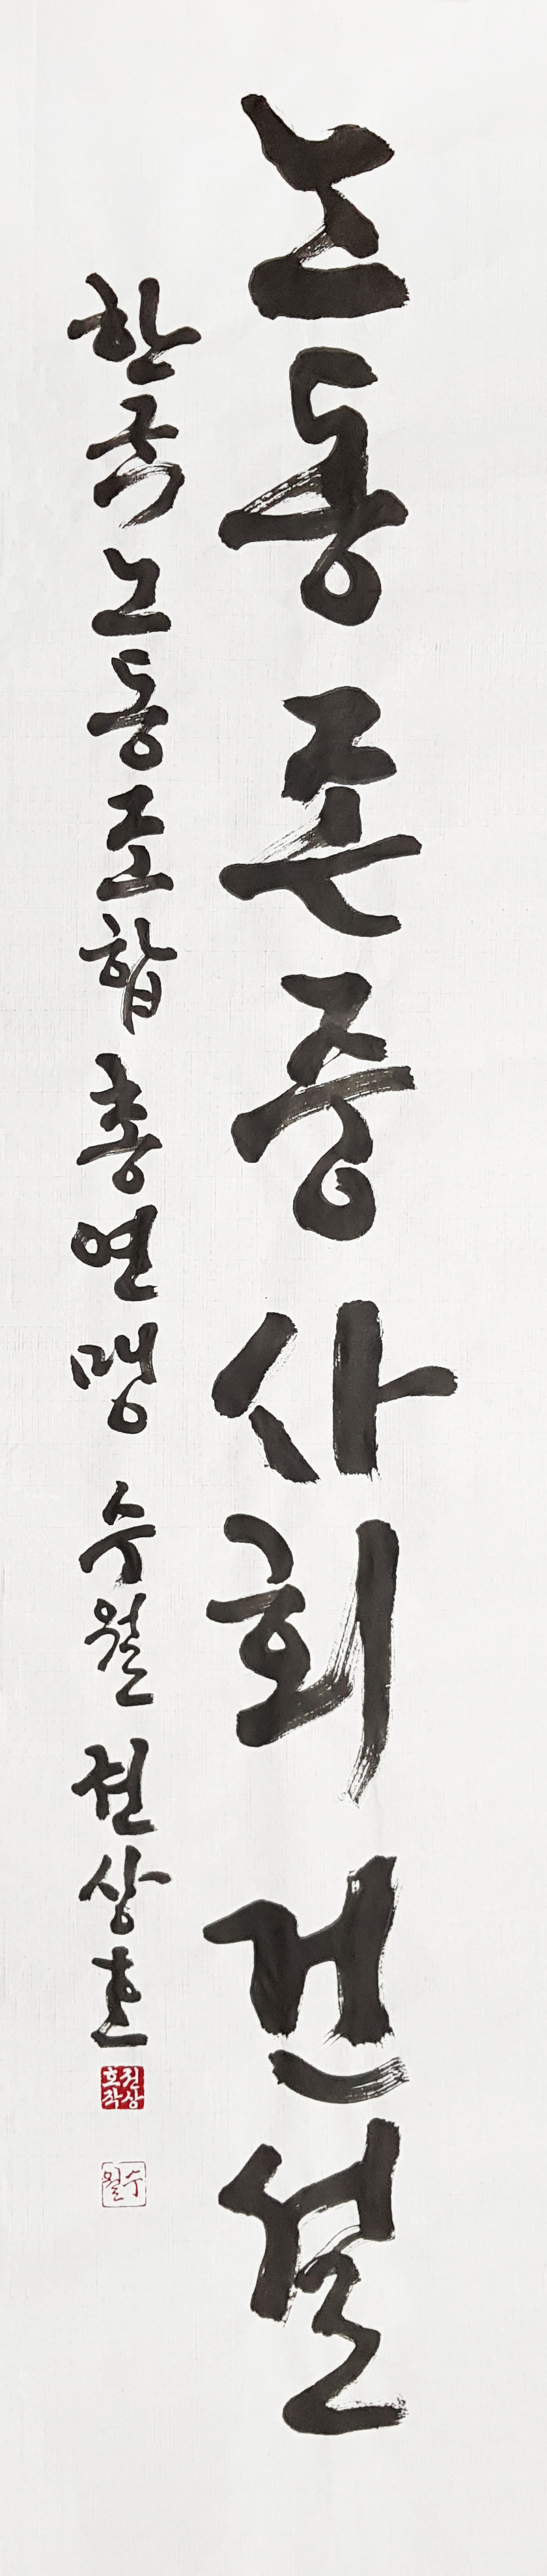 노동존중 사회건설
한국노동조합총연맹 수월
수월